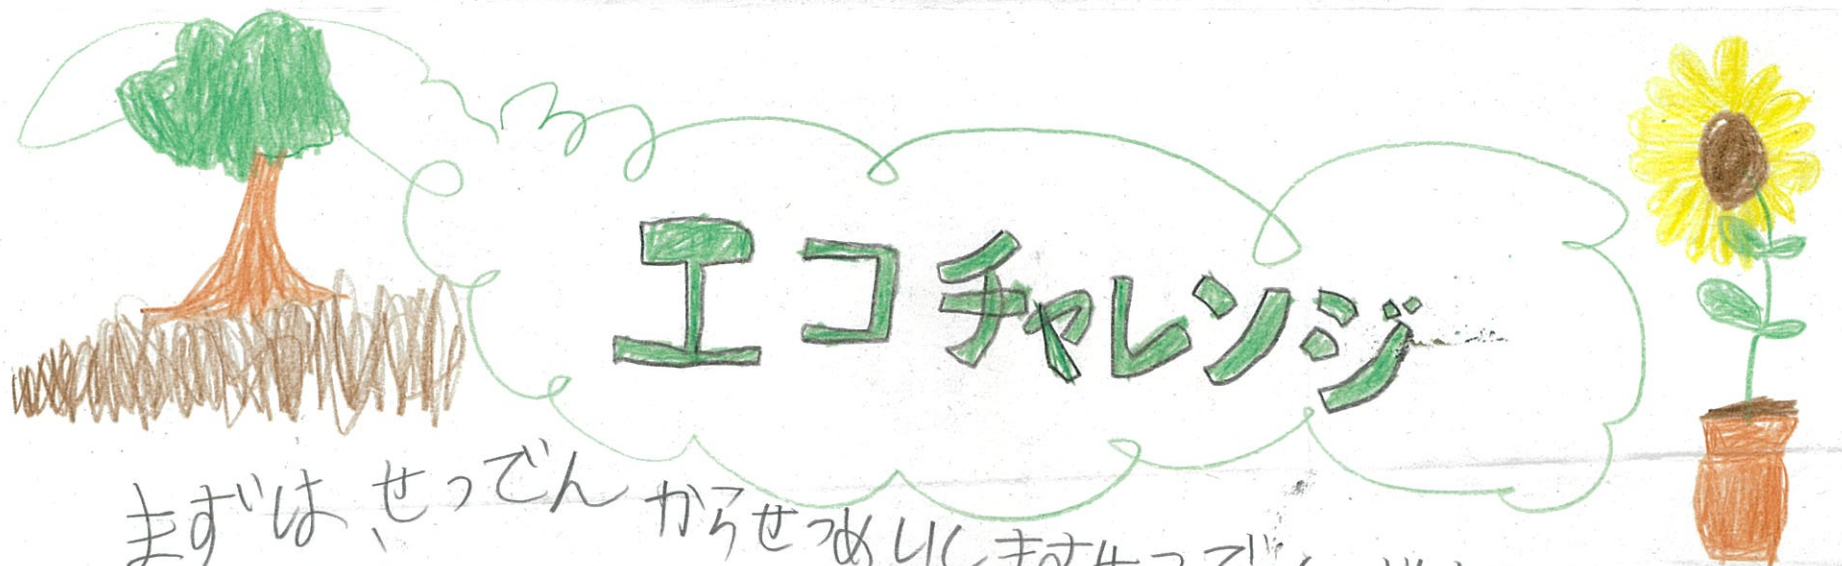 エコチャレンジ
まずは、せつでんからせつめいします。せつでん